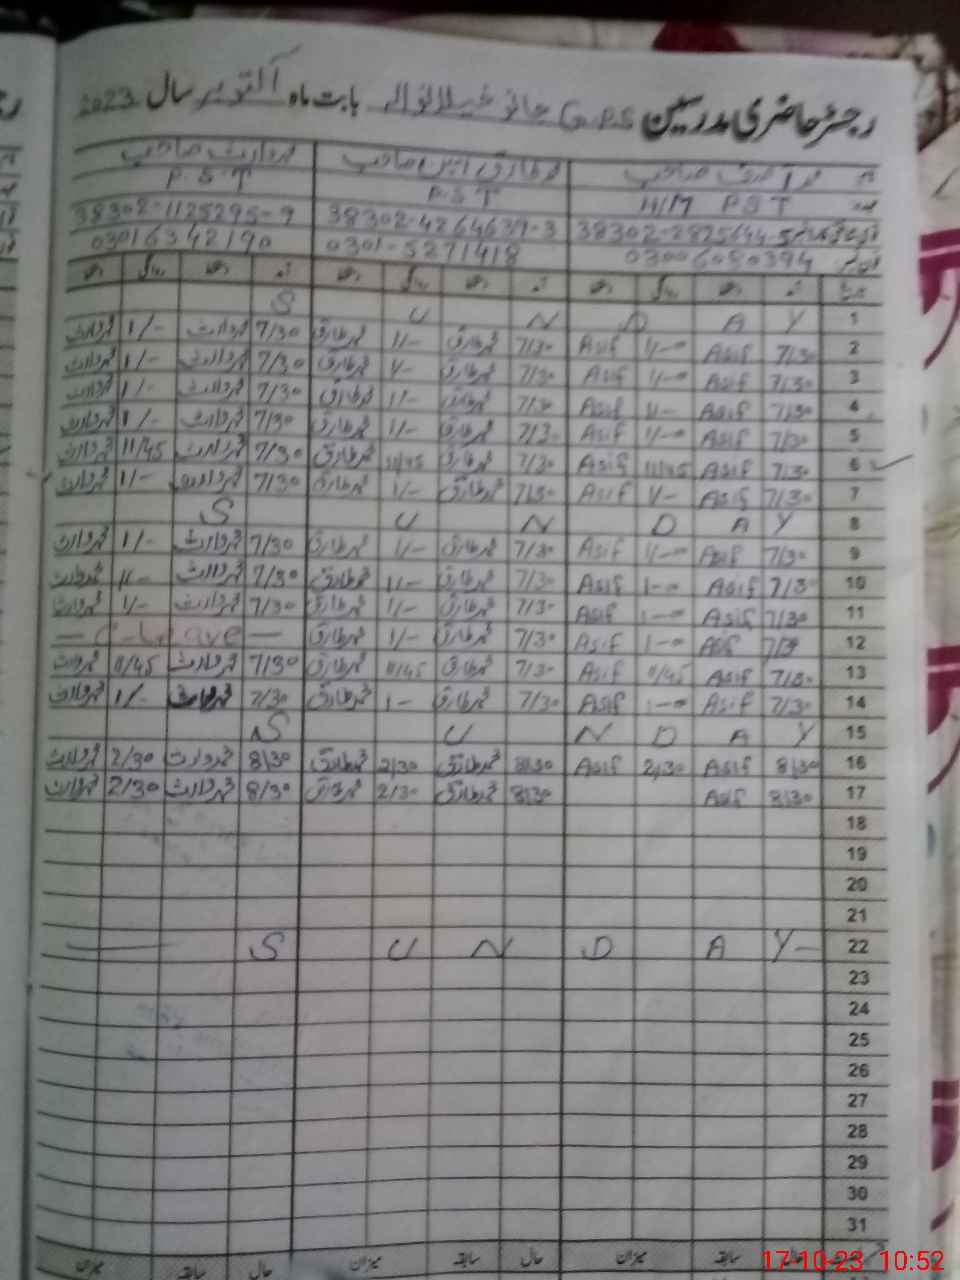 رجسٹر حاضری مدرسین G.P.S جانو خیلانوالہ بابت ماہ اکتوبر سال 2023
محمد آصف صاحب محمد طارق انیس صاحب محمد وارث صاحب
H/M PST P.S.T P.S.T
38302-2825644-5 38302-4264639-3 38302-1125295-9
03006080394 0301-5271418 03016342190
1 S U N D A Y
2 7/30 Asif 1/-0 Asif 7/30 محمد طارق 1/- محمد طارق 7/30 محمد وارث 1/- محمد وارث
3 7/30 Asif 1/-0 Asif 7/30 محمد طارق 1/- محمد طارق 7/30 محمد وارث 1/- محمد وارث
4 7/30 Asif 1/- Asif 7/30 محمد طارق 1/- محمد طارق 7/30 محمد وارث 1/- محمد وارث
5 7/30 Asif 1/-0 Asif 7/30 محمد طارق 1/- محمد طارق 7/30 محمد وارث 1/- محمد وارث
6 7/30 Asif 11/45 Asif 7/30 محمد طارق 11/45 محمد طارق 7/30 محمد وارث 11/45 محمد وارث
7 7/30 Asif 1/- Asif 7/30 محمد طارق 1/- محمد طارق 7/30 محمد وارث 1/- محمد وارث
8 S U N D A Y
9 7/30 Asif 1/-0 Asif 7/30 محمد طارق 1/- محمد طارق 7/30 محمد وارث 1/- محمد وارث
10 7/30 Asif 1-0 Asif 7/30 محمد طارق 1/- محمد طارق 7/30 محمد وارث 1/- محمد وارث
11 7/30 Asif 1-0 Asif 7/30 محمد طارق 1/- محمد طارق 7/30 محمد وارث 1/- محمد وارث
12 7/30 Asif 1-0 Asif 7/30 محمد طارق 1/- محمد طارق — C-Leave —
13 7/30 Asif 11/45 Asif 7/30 محمد طارق 11/45 محمد طارق 7/30 محمد وارث 11/45 محمد وارث
14 7/30 Asif 1-0 Asif 7/30 محمد طارق 1- محمد طارق 7/30 محمد وارث 1/- محمد وارث
15 S U N D A Y
16 8/30 Asif 2/30 Asif 8/30 محمد طارق 2/30 محمد طارق 8/30 محمد وارث 2/30 محمد وارث
17 8/30 Asif 8/30 محمد طارق 2/30 محمد طارق 8/30 محمد وارث 2/30 محمد وارث
18
19
20
21
22 S U N D A Y
23
24
25
26
27
28
29
30
31
حال سابقہ میزان حال سابقہ میزان حال سابقہ میزان
17-10-23 10:52